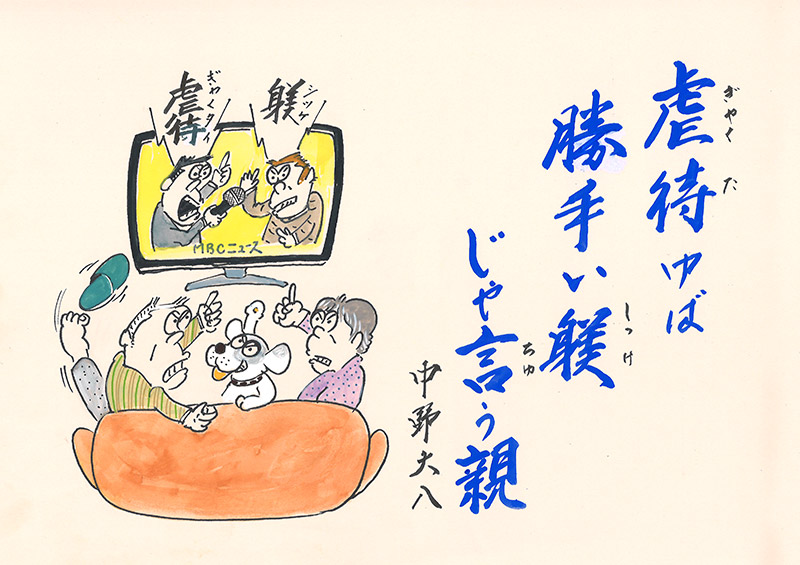 虐待ゆば
ぎゃくだ
勝手い躾
しつけ
じゃ言う親
ちゅ
中野大八
躾
シツケ
虐待
ぎゃくタイ
MBCニュース